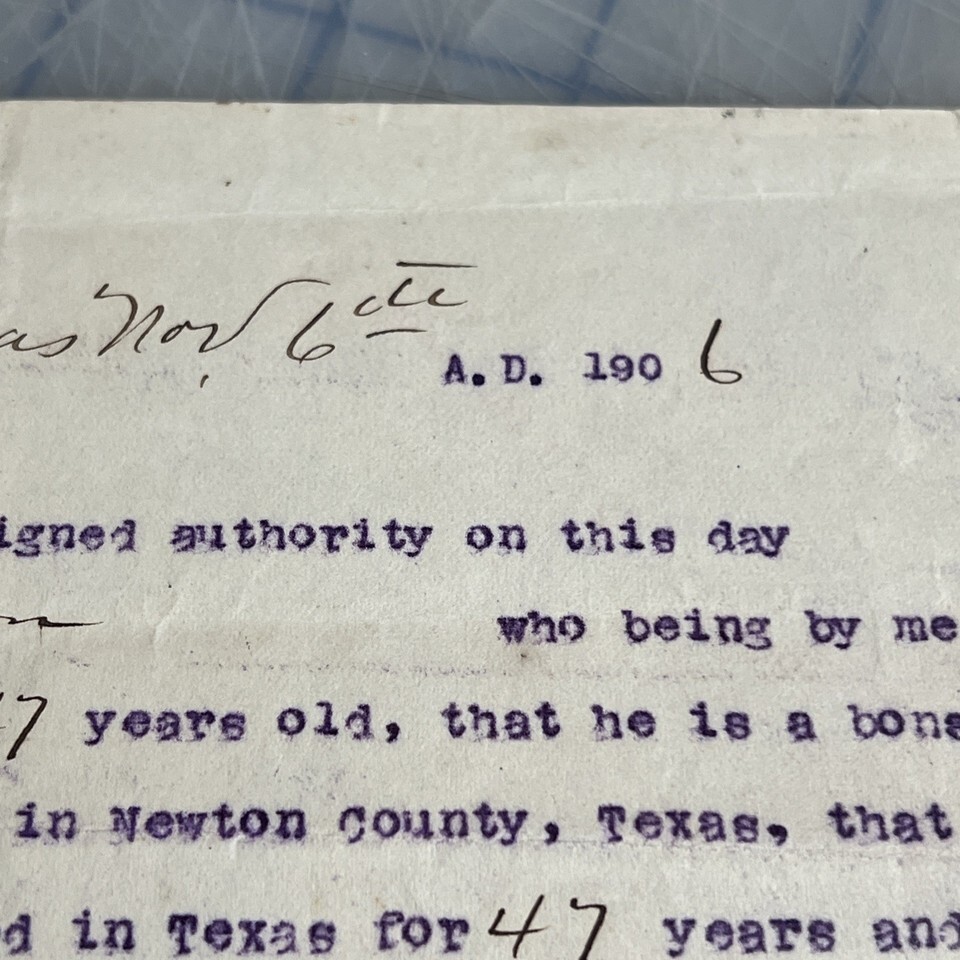 as Nov 6th
A. D. 190 6
igned authority on this day
who being by me
47 years old, that he is a bona
in Newton County, Texas, that
d in Texas for 47 years and